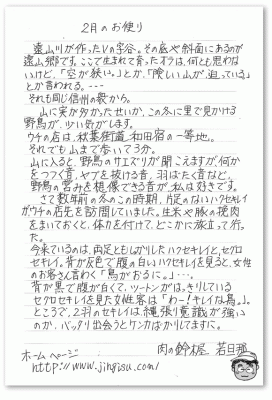 2月のお便り
遠山川が作ったVの字谷。その底や斜面にあるのが
遠山郷です。ここで生まれて育ったオラは、何とも思わな
いけど、「空が狭い。」とか、「険しい山が迫っている」
とか言われる。---
それも同じ信州の衆から。
山に実が少なかったせいか、この冬に里で見かける
野鳥が、少ない気がします。
ウチの店は、秋葉街道和田宿の一等地。
それでも山まで歩いて3分。
山に入ると、野鳥のサエズリが聞こえますが、何か
をつつく音、ヤブを抜ける音、羽ばたく音など、
野鳥の営みを想像できる音が私は好きです。
さて数年前の冬のこの時期、片足のないハクセキレイ
がウチの店先を訪問していました。生米や豚の挽肉
をまいておくと、体力を付けて、どこかに旅立って行っ
た。
今来ているのは、両足ともしっかりしたハクセキレイと、セグロ
セキレイ。背が灰色で腹の白いハクセキレイを見ると、女性
のお客さん言わく「鳥がおるに。」---。
背が黒くて腹が白くて、ツートンがはっきりしている
セグロセキレイを見た女性客は「わー!キレイな鳥。」。
ところで、2羽のセキレイは、縄張り意識が強い
のか、バッタリ出会うとケンカばかりしてますに。
肉の鈴木屋 若旦那
ホームページ
http://www.jingisu.com/